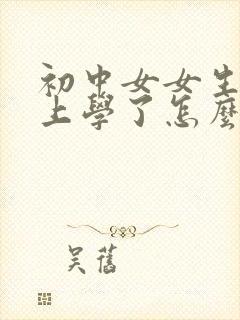 初中女女生
上學了怎麼
吴舊